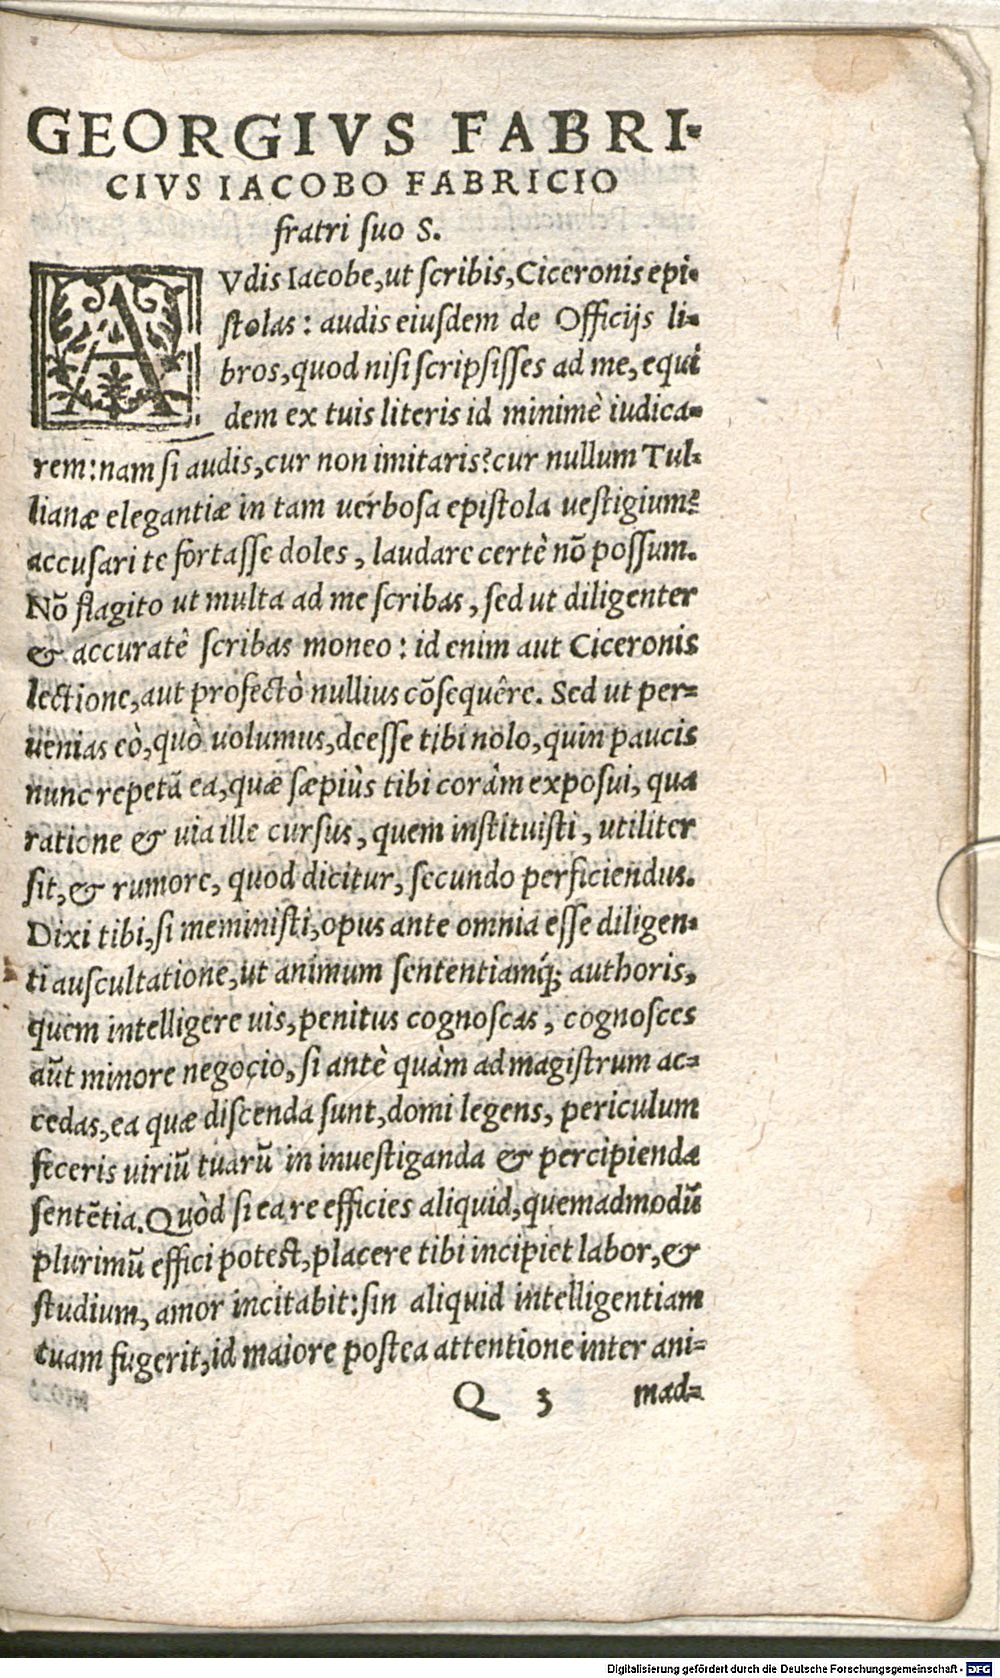 GEORGIVS FABRI-
CIVS IACOBO FABRICIO
fratri ſuo S.
AVdis Iacobe, ut ſcribis, Ciceronis epi-
ſtolas: audis eiuſdem de Officijs li-
bros, quod niſi ſcripſiſſes ad me, equi
dem ex tuis literis id minimè iudica-
rem: nam ſi audis, cur non imitaris? cur nullum Tul-
lianæ elegantiæ in tam uerboſa epiſtola ueſtigium?
accuſari te fortaſſe doles, laudare certè nõ poſſum.
Nõ flagito ut multa ad me ſcribas, ſed ut diligenter
& accuratê ſcribas moneo: id enim aut Ciceronis
lectione, aut profectò nullius cõſequêre. Sed ut per-
uenias eò, quò uolumus, deeſſe tibi nolo, quin paucis
nunc repetã ea, quæ ſæpiùs tibi coràm expoſui, qua
ratione & uia ille curſus, quem inſtituiſti, utiliter
ſit, & rumore, quod dicitur, ſecundo perficiendus.
Dixi tibi, ſi meminiſti, opus ante omnia eſſe diligen-
ti auſcultatione, ut animum ſententiamq́; authoris,
quem intelligere uis, penitus cognoſcas, cognoſces
aũt minore negocio, ſi antè quàm ad magiſtrum ac-
cedas, ea quæ diſcenda ſunt, domi legens, periculum
feceris uiriũ tuarũ in inueſtiganda & percipienda
ſentẽtia. Quòd ſi ea re efficies aliquid, quemadmodũ
plurimũ effici poteſt, placere tibi incipiet labor, &
ſtudium, amor incitabit: ſin aliquid intelligentiam
tuam fugerit, id maiore poſtea attentione inter ani-
Q 3 mad-
Digitalisierung gefördert durch die Deutsche Forschungsgemeinschaft - DFG